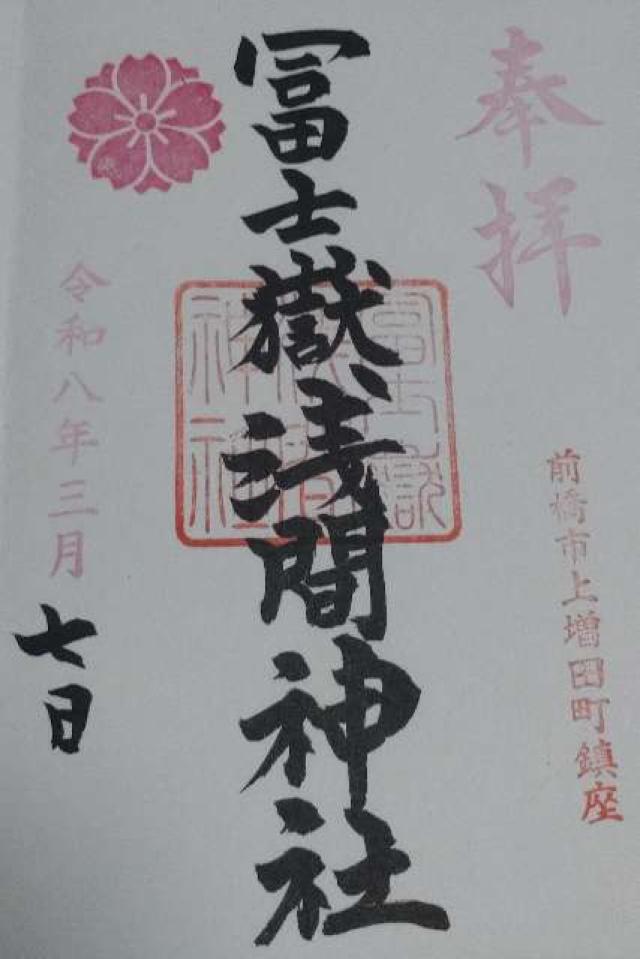 奉拝
前橋市上増田町鎮座
冨士嶽浅間神社
令和八年三月
七日